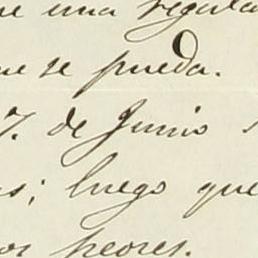 ue una regula
ue se pueda.
7. de Junio
s; luego que
os peores.